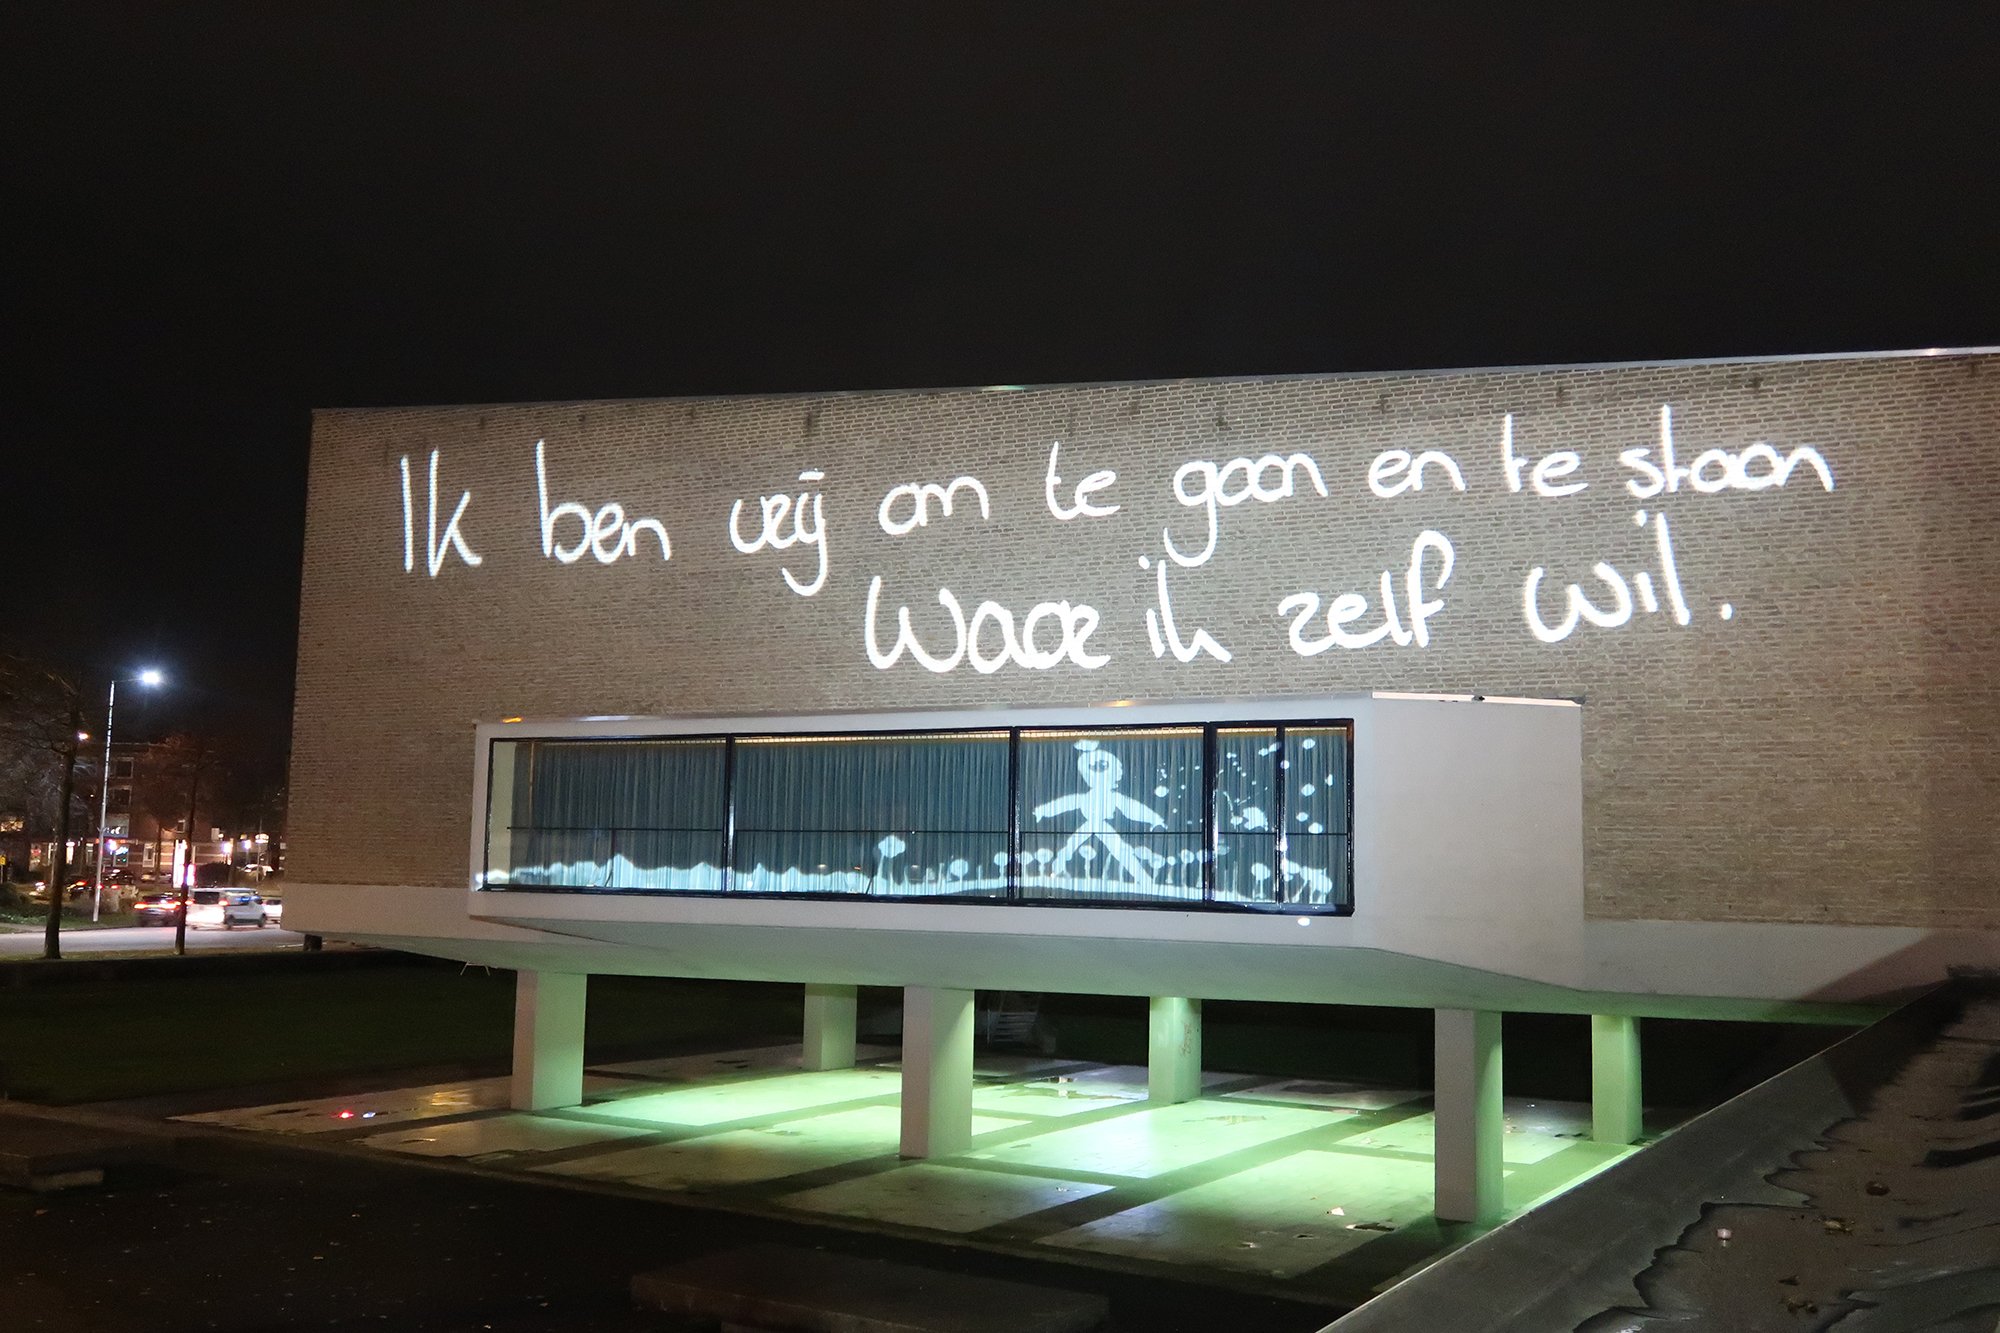 Ik ben vrij om te gaan en te staan
Waar ik zelf wil.